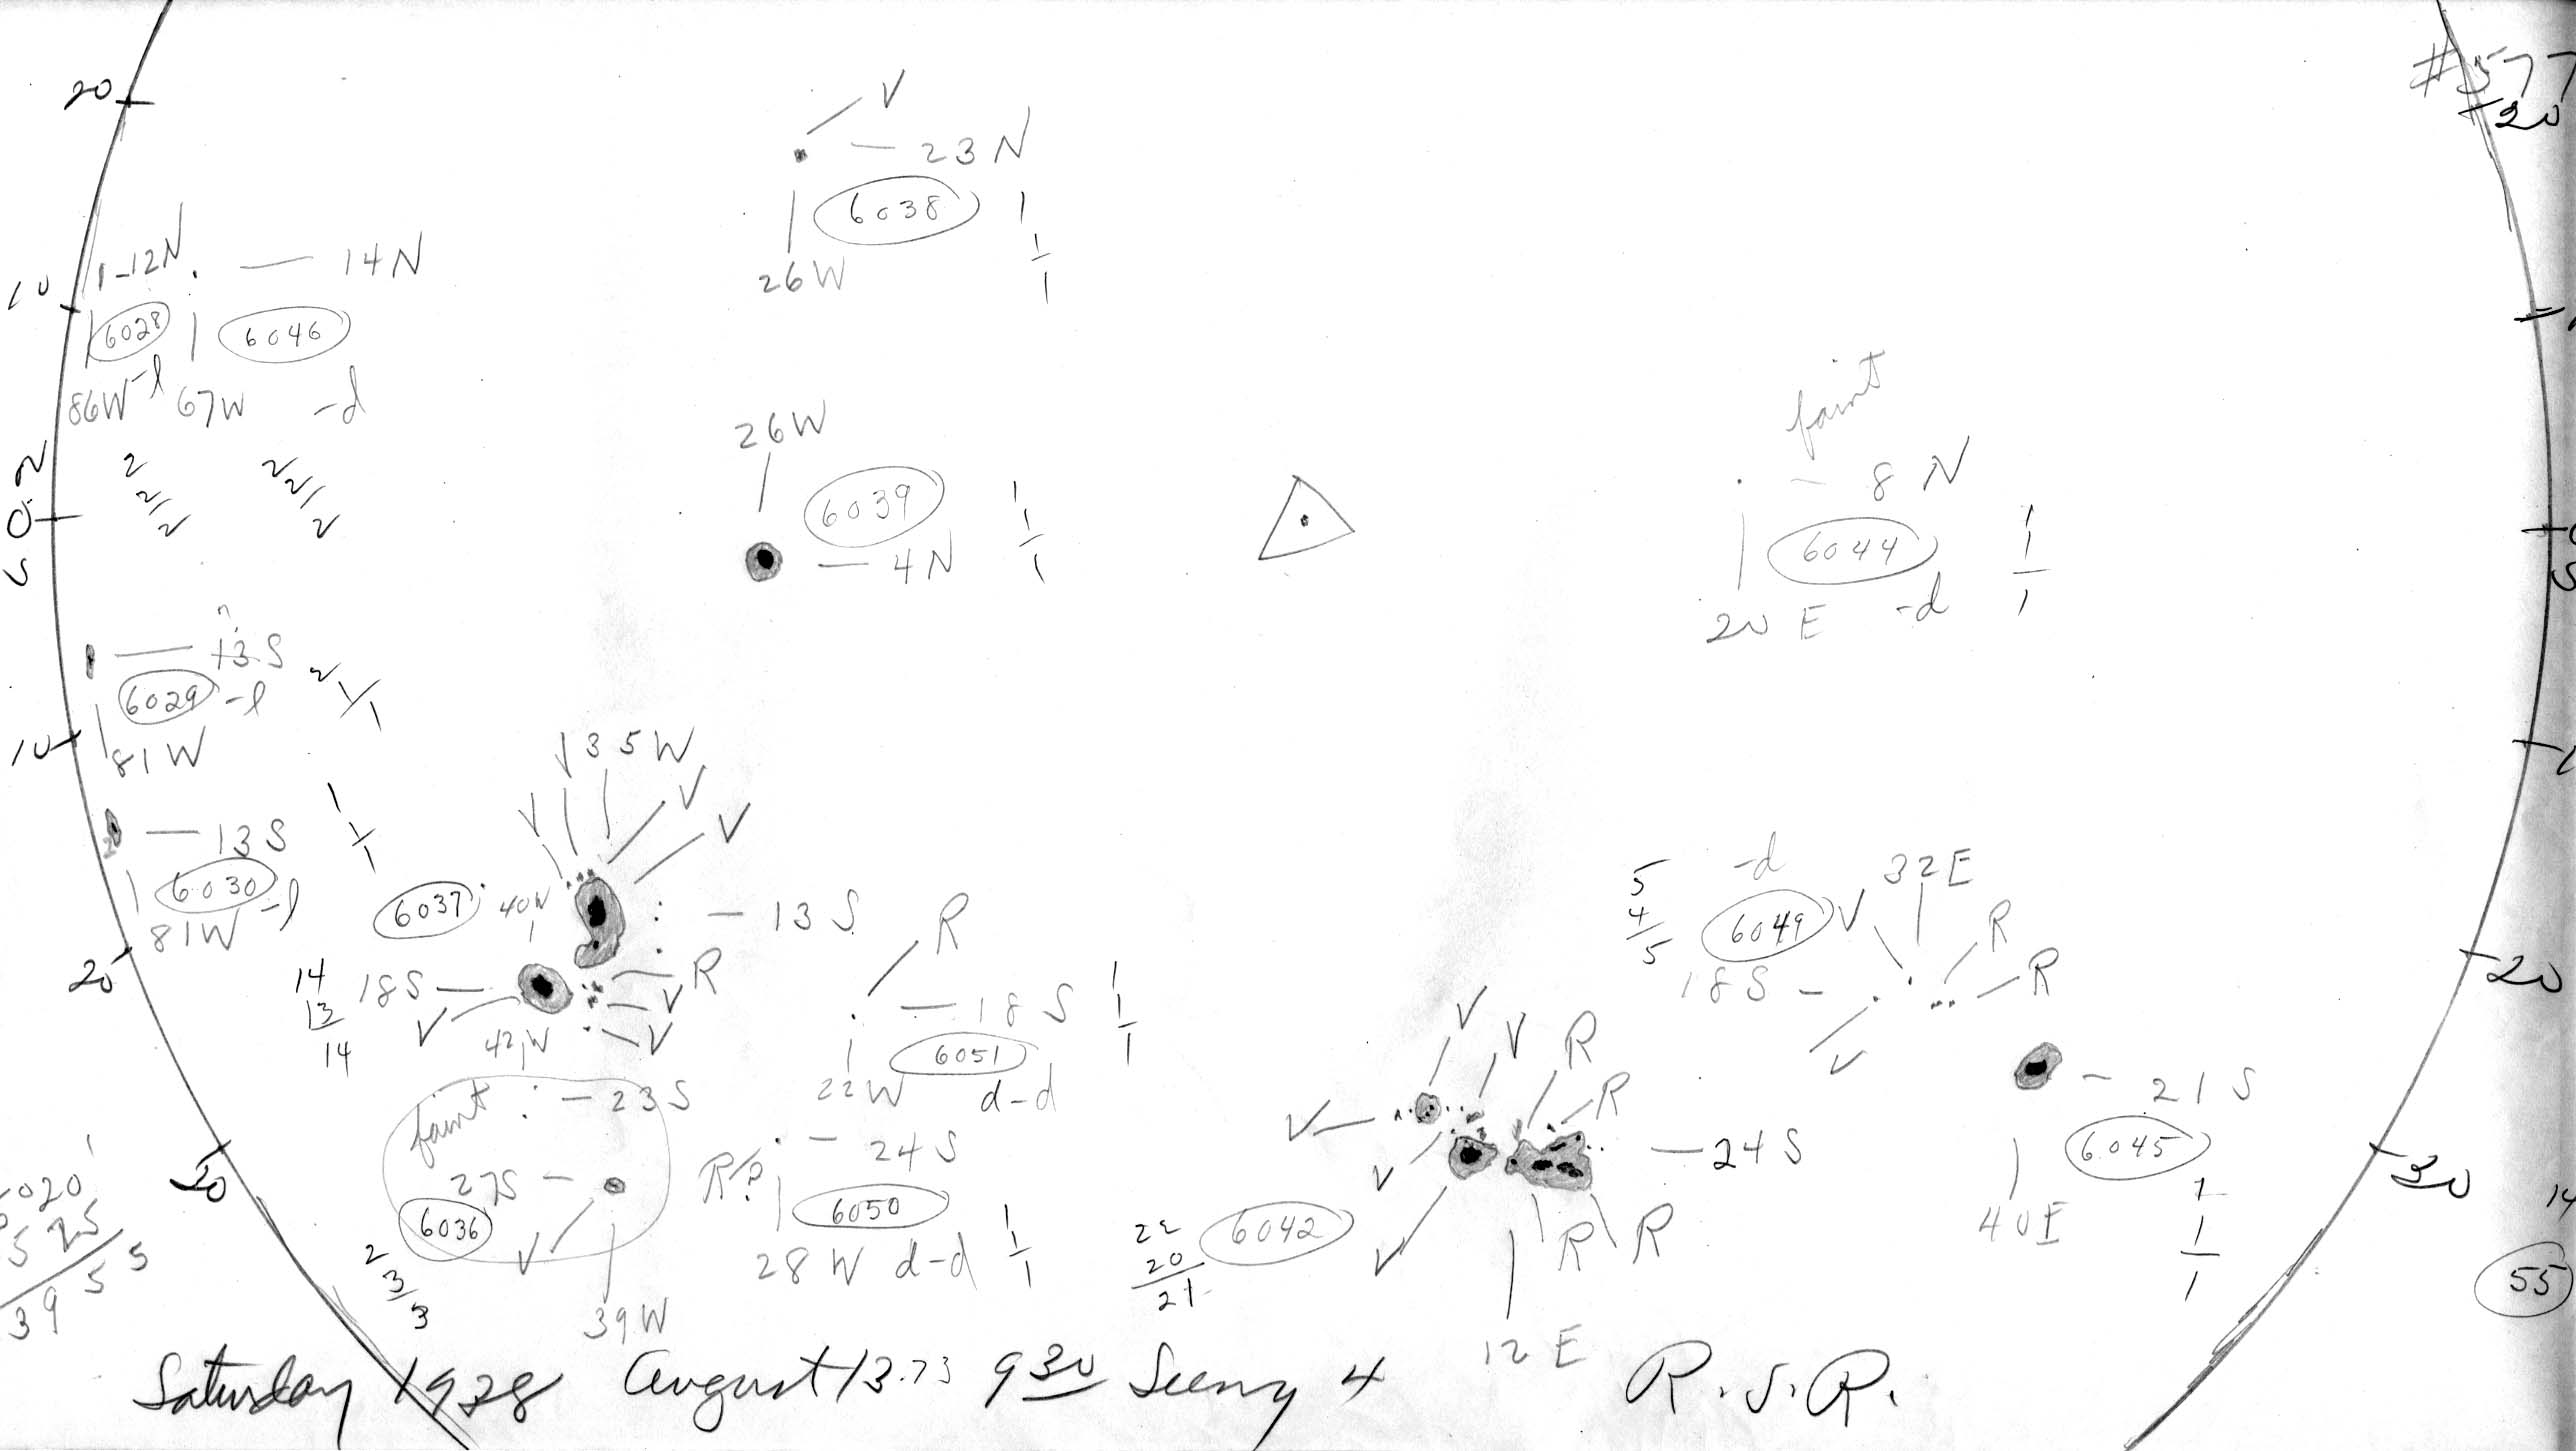 20
#577
20
V
— 23 N
6038
26W
1
1
1
1-12N
— 14 N
10
6028
6046
86W -l
67W
-d
2
2
2
2
2
2
N
0
S
26W
6039
— 4 N
1
1
1
faint
— 8 N
6044
20 E
-d
1
1
1
— 13 S
6029
-l
81 W
2
1
1
10
— 13 S
6030
-l
81W
1
1
1
20
V
V
35W
V
V
6037
40W
— 13 S
18 S —
V
R
V
V
42W
14
13
14
R
— 18 S
6051
22W
d-d
1
1
1
faint
— 23 S
27S —
6036
V
39W
2
3
3
R?
— 24 S
6050
28 W
d-d
1
1
1
V
V
R
R
V
V
V
— 24 S
6042
R
R
12 E
22
20
21
5
4
5
-d
6049
V
32 E
R
R
18 S —
V
20
— 21 S
6045
40E
1
1
1
30
30
14
55
020
5 25
39 5 5
Saturday 1938 August 13.73 9 30 Seeing 4 R.S.R.